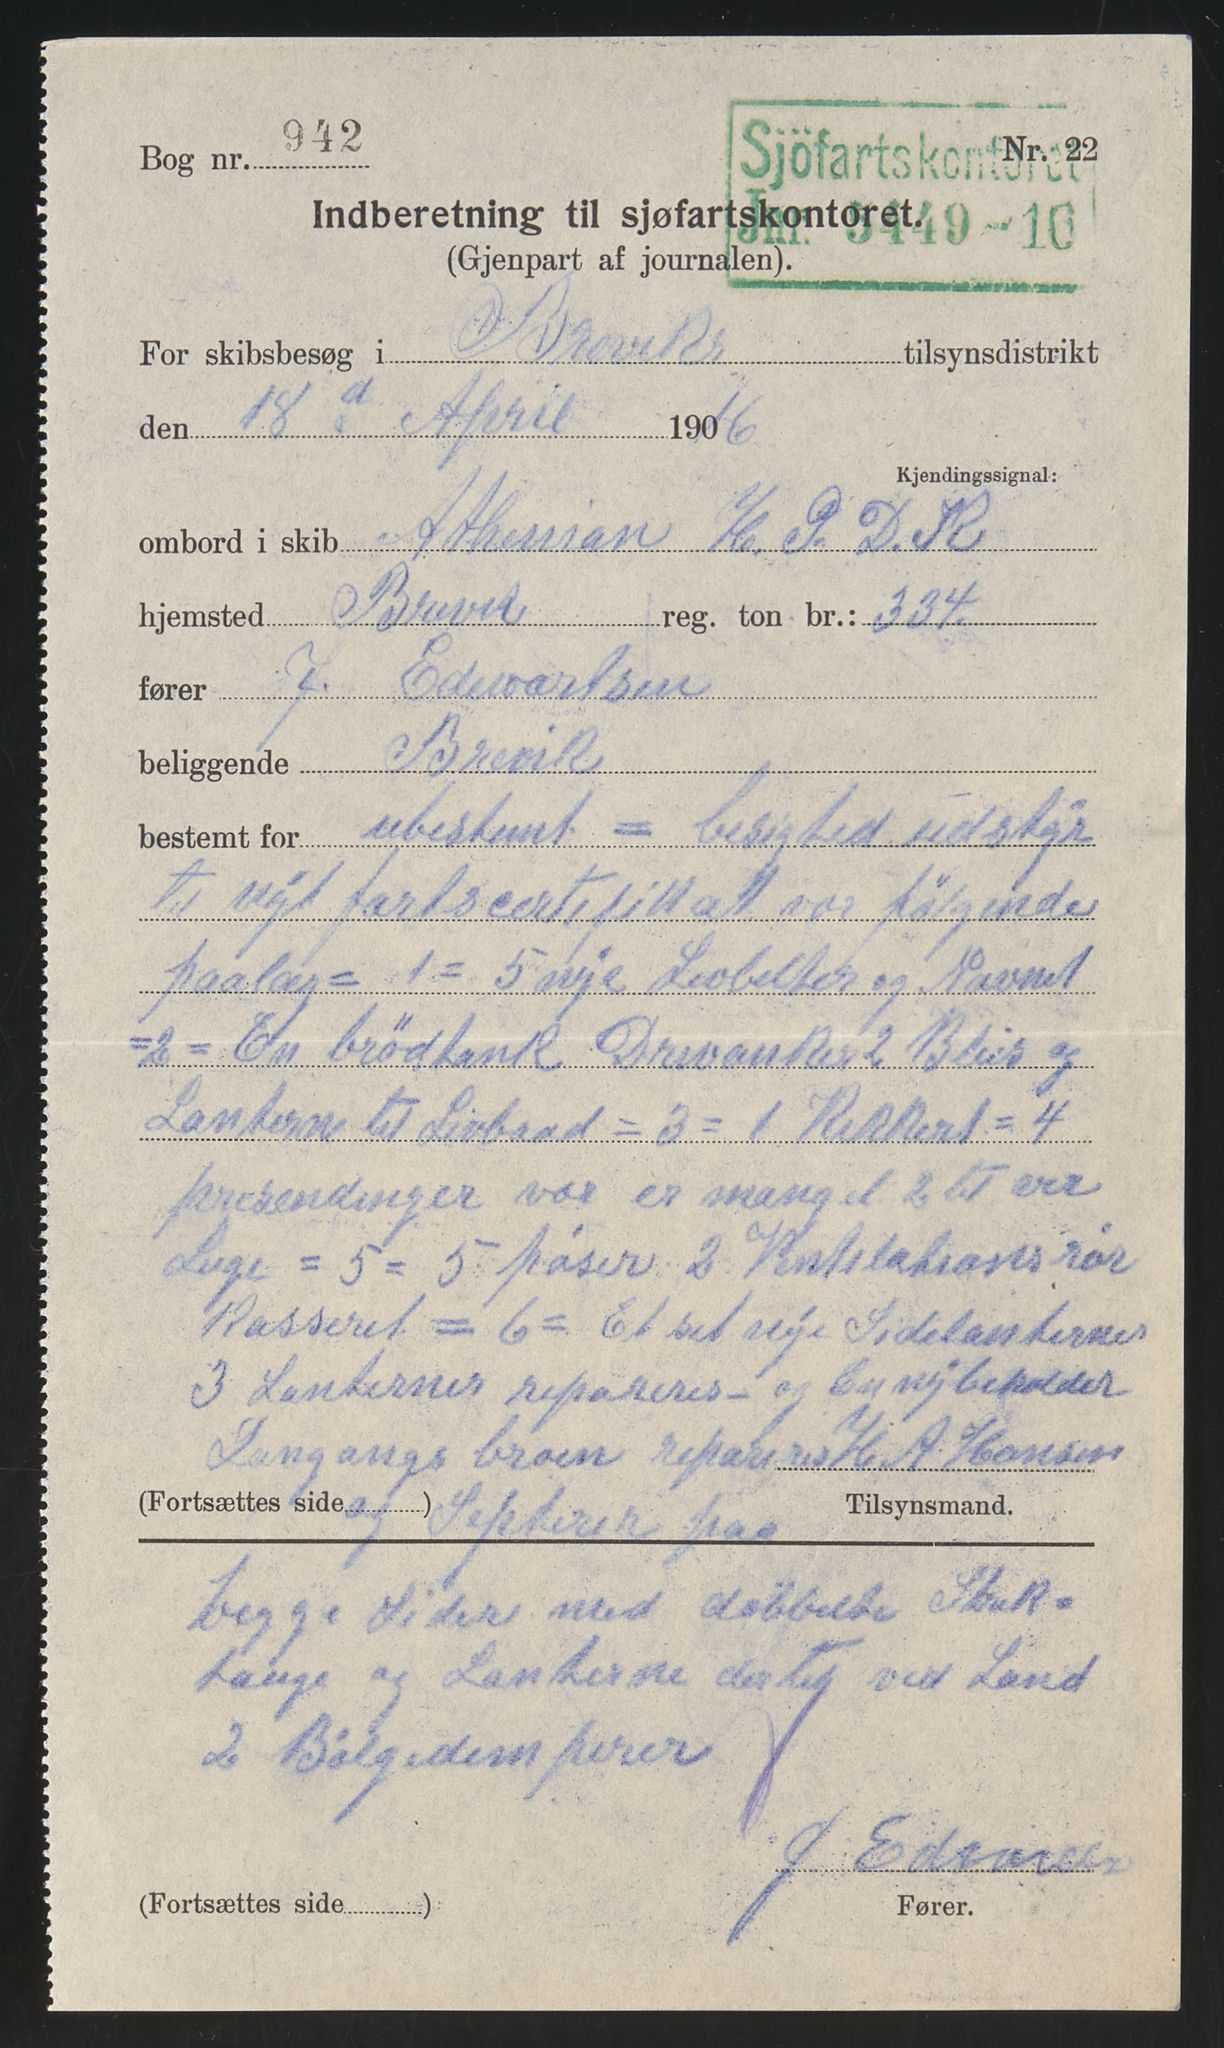 Bog nr. 942
Nr. 22
Sjöfartskontoret
Jnr. 5449-16
Indberetning til sjøfartskontoret.
(Gjenpart af journalen).
For skibsbesøg i Breviks tilsynsdistrikt
den 18d April 1916
Kjendingssignal:
ombord i skib Athenian H. P. D. K
hjemsted Brevik reg. ton br.: 334.
fører J. Edewartsen
beliggende Brevik
bestemt for ubestemt = besigted udstyr
til nyt fartscertifikat vor følgende
paalag = 1 = 5 nye Levbelter og Navnet
=2 = En brödtank Drevanker 2 Blus og
Lanterne til Livbaad = 3 = 1 Kikkert = 4
presendinger vor er mangel 2 til ver
Luge = 5 = 5 pöser 2 Ventilations rör
Kasseret = 6 = Et set nye Sidelanterner
3 Lanterner repareres - og En ny beholder
Langangs broen repareres H. A. Hansen
(Fortsættes side ) Tilsynsmand.
og Septerer paa
begge Sider med dobbelte
tauge og Lanterne dertil ved Land
2 Bölgedemperer
J Edvartsen
(Fortsættes side ) Fører.